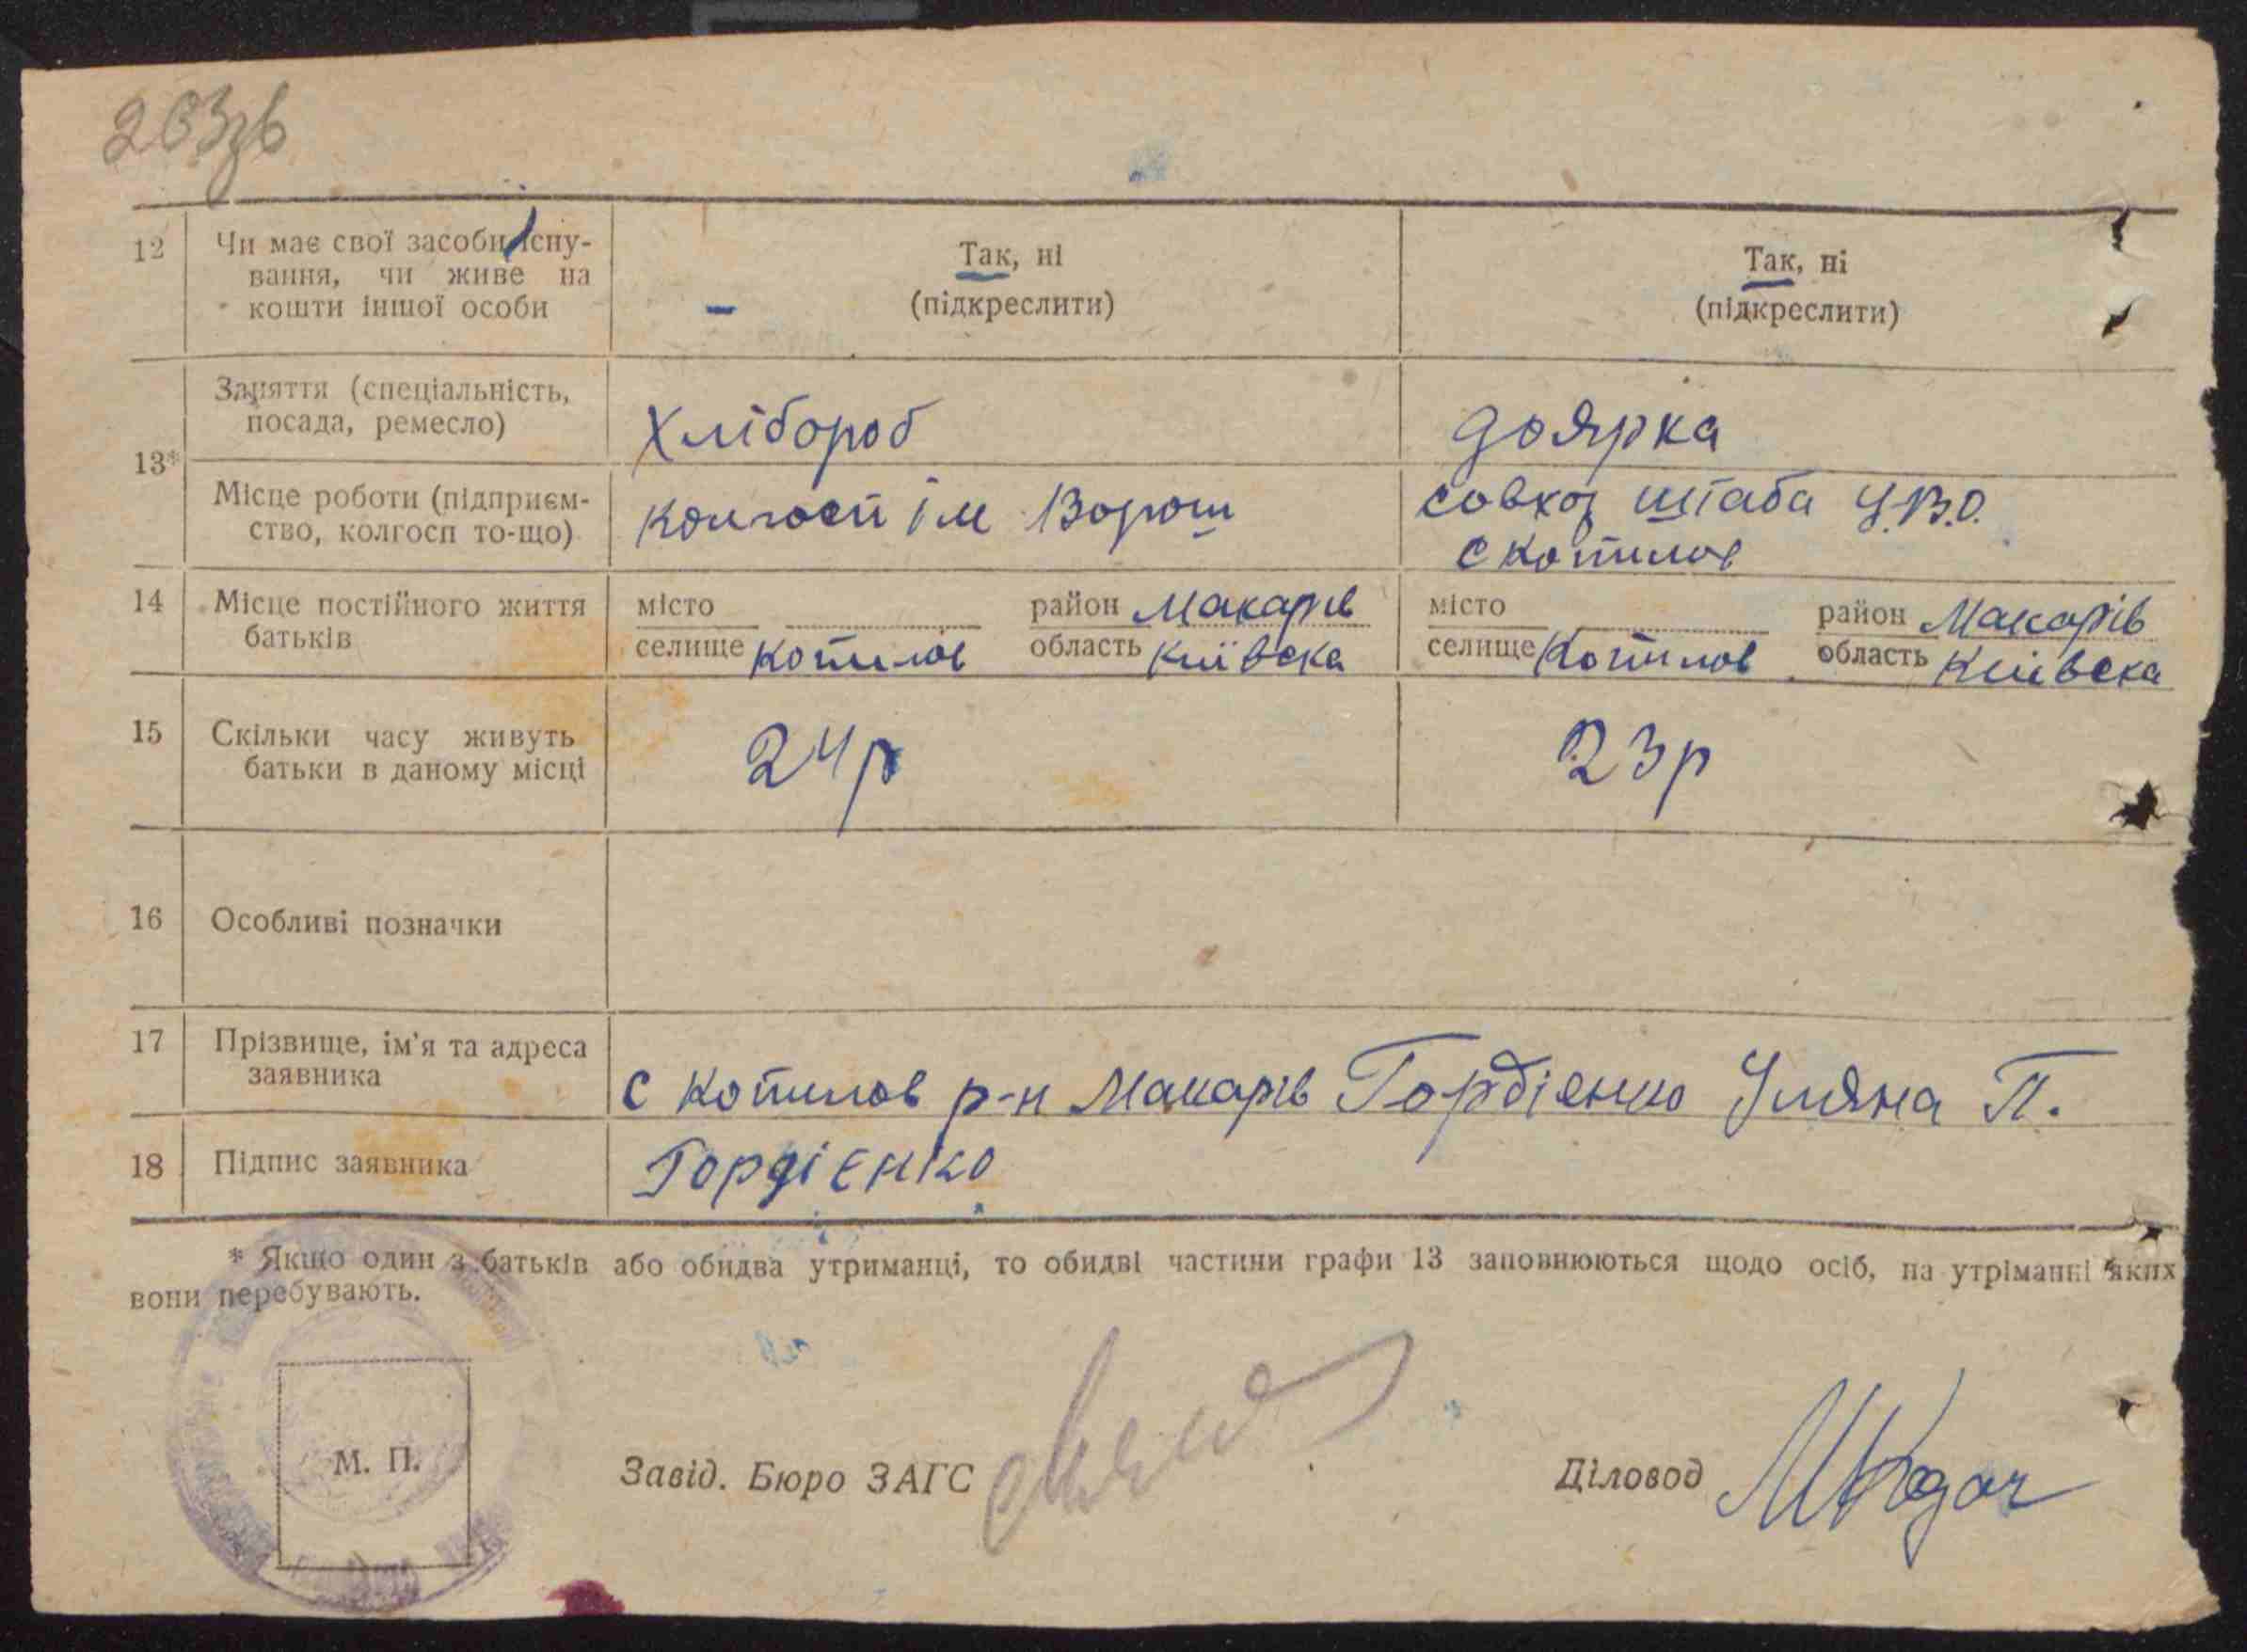 203зв
12 Чи має свої засоби існу-
вання, чи живе на
кошти іншої особи
Так, ні
(підкреслити)
Так, ні
(підкреслити)
13*
Заняття (спеціальність,
посада, ремесло)
Хлібороб
доярка
Місце роботи (підприєм-
ство, колгосп то-що)
колгосп ім Ворош
совхоз штаба У.В.О.
с Копилов
14 Місце постійного життя
батьків
місто
селище Копилов
район Макарів
область Київска
місто
селище Копилов
район Макарів
область Київска
15 Скільки часу живуть
батьки в даному місці
24р
23р
16 Особливі позначки
17 Прізвище, ім'я та адреса
заявника
с Копилов р-н Макарів Гордіенко Уляна П.
18 Підпис заявника
Гордієнко
* Якщо один з батьків або обидва утриманці, то обидві частини графи 13 заповнюються щодо осіб, на утріманні яких
вони перебувають.
М. П.
Завід. Бюро ЗАГС
Діловод